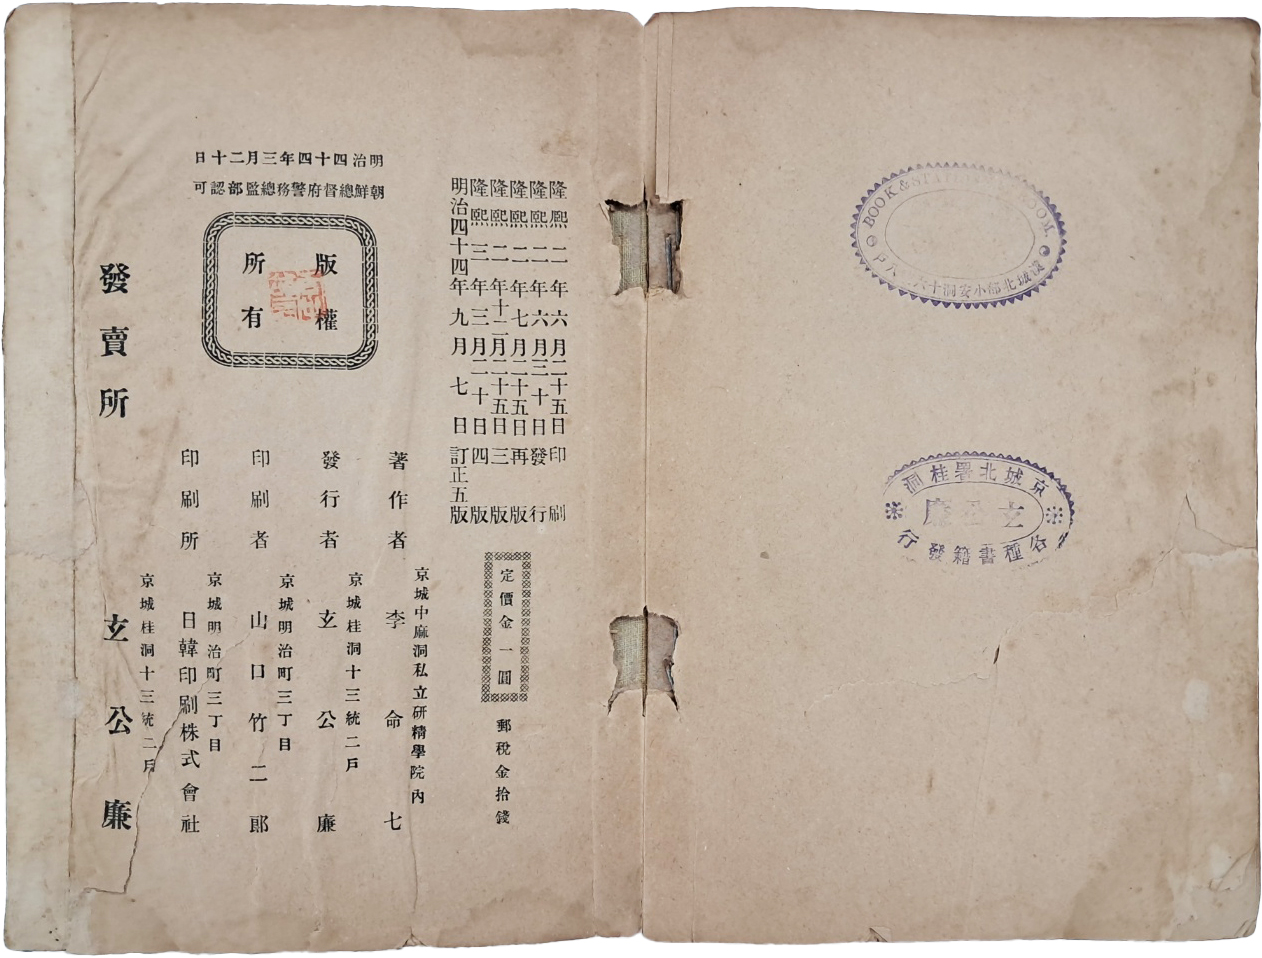 隆熙二年六月二十五日印刷
隆熙二年六月三十日發行
隆熙二年七月二十五日再版
隆熙二年十二月二十五日三版
隆熙三年三月二十日四版
明治四十四年九月七日訂正五版
定價金一圓
郵稅金拾錢
明治四十四年三月二十日
朝鮮總督府警務總監部認可
版權
所有
京城中麻洞私立研精學院內
著作者 李命七
京城桂洞十三統二戶
發行者 玄公廉
京城明治町三丁目
印刷者 山口竹二郎
京城明治町三丁目
印刷所 日韓印刷株式會社
京城桂洞十三統二戶
發賣所 玄公廉
BOOK & ST
OOM.
城北部小安洞十六
京城北署桂洞
玄公廉
各種書籍發行